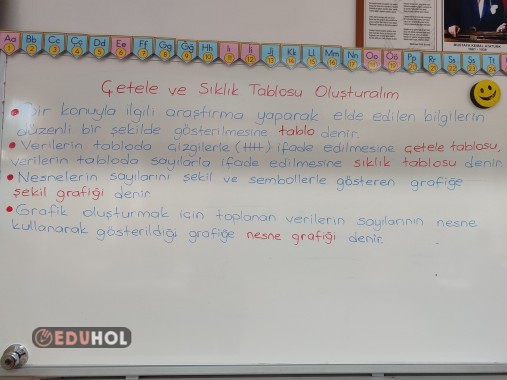 Aa Bb Cc Çç Dd Ee Ff Gg Ğğ Hh Iı İi Jj Kk Ll Mm Nn Oo Öö Pp Rr Ss Şş Tt
1 2 3 4 5 6 7 8 9 10 11 12 13 14 15 16 17 18 19 20 21 22 23 24
MUSTAFA KEMAL ATATÜRK
Çetele ve Sıklık Tablosu Oluşturalım
• Bir konuyla ilgili araştırma yaparak elde edilen bilgilerin
düzenli bir şekilde gösterilmesine tablo denir.
• Verilerin tabloda çizgilerle (卌) ifade edilmesine çetele tablosu,
verilerin tabloda sayılarla ifade edilmesine sıklık tablosu denir.
• Nesnelerin sayılarını şekil ve sembollerle gösteren grafiğe
şekil grafiği denir.
• Grafik oluşturmak için toplanan verilerin sayılarının nesne
kullanarak gösterildiği grafiğe nesne grafiği denir.
EDUHOL